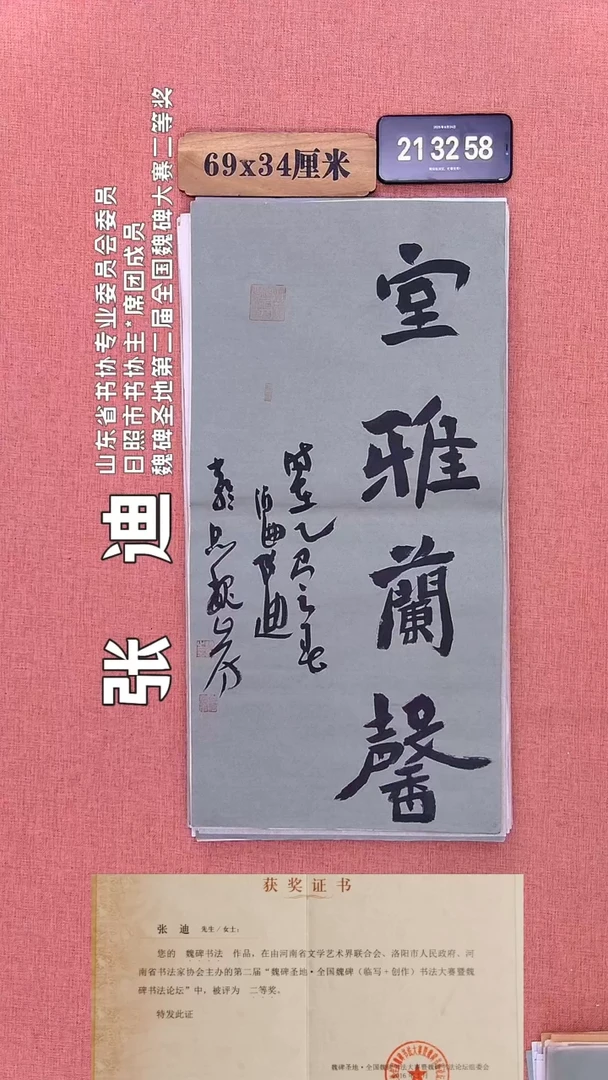 69x34厘米
21 32 58
山东省书协专业委员会委员
日照市书协主*席团成员
魏碑圣地第二届全国魏碑大赛二等奖
张 迪
室雅蘭馨
时在乙巳之春
张迪
获奖证书
张 迪 先生/女士:
您的 魏碑书法 作品,在由河南省文学艺术界联合会、洛阳市人民政府、河
南省书法家协会主办的第二届“魏碑圣地·全国魏碑(临写+创作)书法大赛暨魏
碑书法论坛”中,被评为 二等奖。
特发此证
魏碑圣地·全国魏碑书法大赛暨魏碑书法论坛组委会